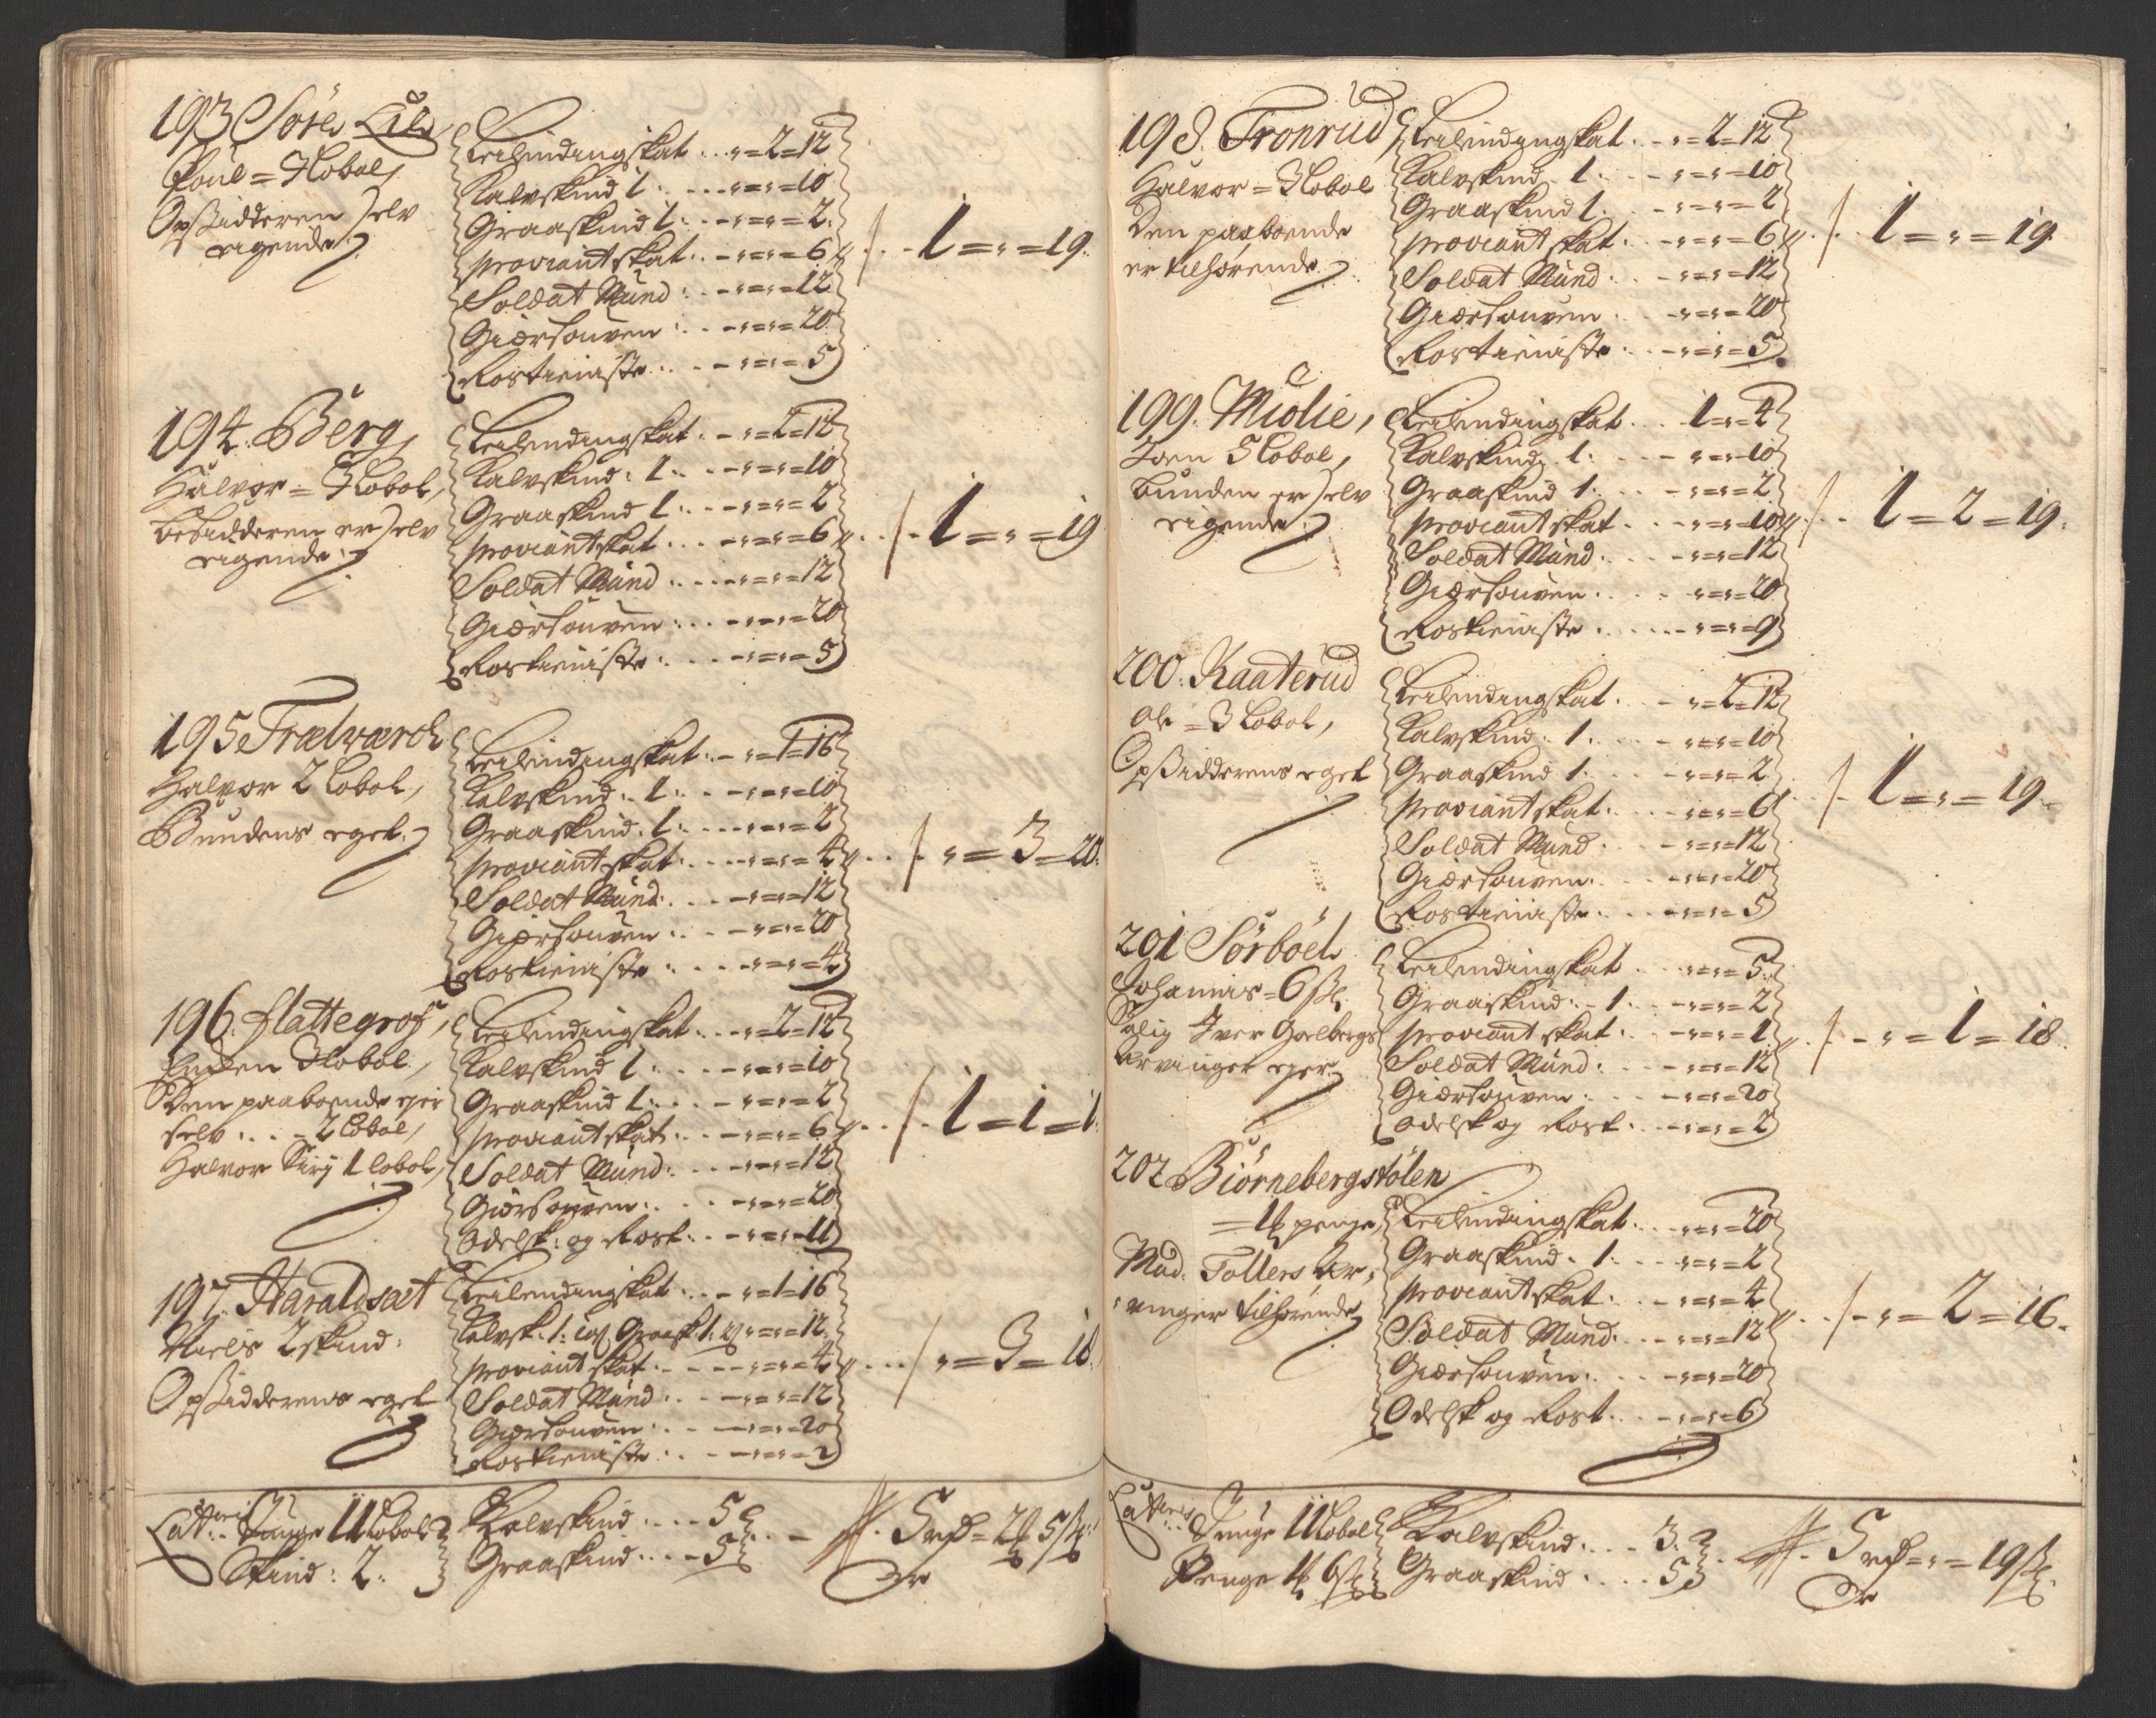 193 Søre Lie
Poul = 3 lobol,
Opsidderen selv
eigende
Leilendingskat . . „ = 2 = 12
Kalvskind 1 : . . . „ = „ = 10
Graaskind 1 : . . „ = „ = 2
proviant skat . . „ = „ = 6
Soldat Mund : . . „ = „ = 12
Giærhouven : . . „ = „ = 20
Rostieniste . . „ = „ = 5
1 = „ = 19
194. Berg,
Halvor = 3 lobol,
besidderen er selv
eigende
Leilendingskat . . „ = 2 = 12
Kalvskind : 1 . . „ = „ = 10
Graaskind 1 : . . „ = „ = 2
proviantskat . . „ = „ = 6
Soldat Mund : . . „ = „ = 12
Giærhouven : . . „ = „ = 20
Rostieniste : . . „ = „ = 5
1 = „ = 19
195 Trælværch
Halvor 2 lobol,
Bundens eget
Leilendingskat . . „ = 1 = 16
Kalvskind : 1 : . . „ = „ = 10
Graaskind : 1 : . . „ = „ = 2
proviantskat : . . „ = „ = 4
Soldat Mund : . . „ = „ = 12
Giærhouven : . . „ = „ = 20
Rostieniste : . . „ = „ = 4
„ = 3 = 20
196. Hattegrof,
3 lobol,
Den paaboende ejer
selv . . 2 lobol,
Halvor 1 lobol,
Leilendingskat . . „ = 2 = 12
Kalvskind 1 : . . „ = „ = 10
Graaskind 1 : . . „ = „ = 2
proviantskat : . . „ = „ = 6
Soldat Mund : . . „ = „ = 12
Giærhouven : . . „ = „ = 20
Odelsk : og Rost : . . „ = „ = 11
1 = 1 = 1
197. Haraldsæt
Niels 2 skind :
Opsidderens eget
Leilendingskat . . „ = 1 = 16
Kalvsk : 1 : og Graask 1 : „ = „ = 12
proviantskat . . „ = „ = 4
Soldat Mund : . . „ = „ = 12
Giærhouven : . . „ = „ = 20
Rostieniste : . . „ = „ = 2
„ = 3 = 18
Lateris Tunge 11 lobol
Skind : 2 :
Kalvskind . . . 5
Graaskind . . . 5
5 rd = 2 ₰ 5 ß
198. Tronrud,
Halvor = 3 lobol
Den paaboende
er tilhørende
Leilendingskat . . „ = 2 = 12
Kalvskind 1 : . . „ = „ = 10
Graaskind 1 : . . „ = „ = 2
proviant skat . . „ = „ = 6
Soldat Mund : . . „ = „ = 12
Giærhouven . . „ = „ = 20
Rostieniste . . „ = „ = 5
1 = „ = 19
199. Miølie,
Joen 5 lobol,
bunden er selv
eigende
Leilendingskat . . 1 = „ = 4
Kalvskind 1 : . . „ = „ = 10
Graaskind 1 : . . „ = „ = 2
proviantskat . . „ = „ = 10
Soldat Mund . . „ = „ = 12
Giærhouven . . „ = „ = 20
Rostieniste . . „ = „ = 9
1 = 2 = 19
200. Kaaterud
Ole = 3 lobol,
Opsidderens eget
Leilendingskat . . „ = 2 = 12
Kalvskind : 1 . . „ = „ = 10
Graaskind 1 . . „ = „ = 2
proviantskat . . „ = „ = 6
Soldat Mund . . „ = „ = 12
Giærhouven . . „ = „ = 20
Rostieniste . . „ = „ = 5
1 = „ = 19
201 Sørbøel
Johannis = 6 ß
Salig Iver Goelbergs
arvinger ejer
Leilendingskat . . „ = „ = 5
Graaskind : 1 . . „ = „ = 2
proviant skat . . „ = „ = 1
Soldat Mund : . . „ = „ = 12
Giærhouven : . . „ = „ = 20
Odelsk og Rost . . „ = „ = 2
„ = 1 = 18
202 Biørnebergstølen
= 1 ₰ penge
Mad. Tollers Ar,
vinger tilhørende
Leilendingskat . . „ = „ = 20
Graaskind . 1 . . „ = „ = 2
proviantskat . . „ = „ = 4
Soldat Mund . . „ = „ = 12
Giærhouven . . „ = „ = 20
Odelsk og Rost . . „ = „ = 6
„ = 2 = 16
Lateris Tunge 11 lobol
Penge 1 ₰ 6 ß
Kalvskind . . . 3
Graaskind . . . 5
5 rd = „ = 19 ß